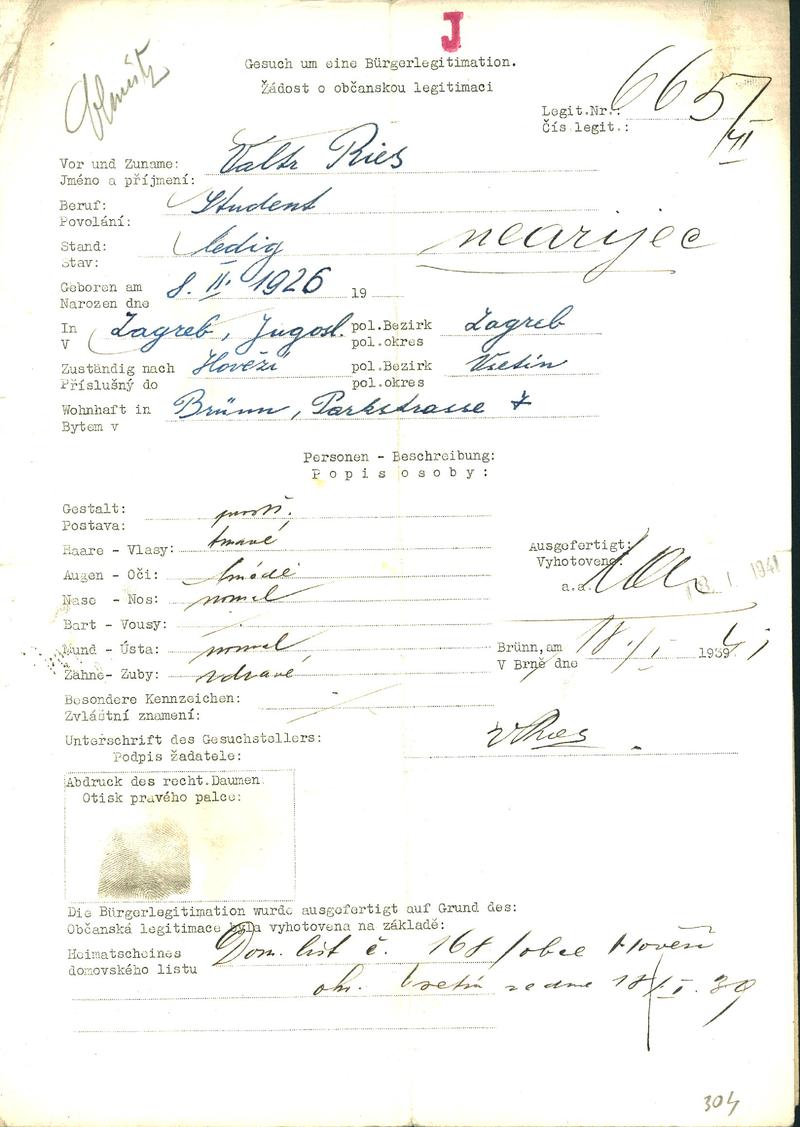 J
Gesuch um eine Bürgerlegitimation.
Žádost o občanskou legitimaci
Legit.Nr.: 665/41
Čís legit.:
Vor und Zuname: Valtr Ries
Jméno a příjmení:
Beruf: Student
Povolání:
nearijec
Stand: ledig
Stav:
Geboren am 8. II. 1926 19
Narozen dne
In Zagreb, Jugosl. pol.Bezirk Zagreb
V pol.okres
Zuständig nach Hověží pol.Bezirk Vsetín
Příslušný do pol.okres
Wohnhaft in Brünn, Parkstrasse 7
Bytem v
Personen - Beschreibung:
Popis osoby:
Gestalt: prostř.
Postava:
Haare - Vlasy: tmavé
Augen - Oči: hnědé
Nase - Nos: normal
Bart - Vousy:
Mund - Ústa: normal
Zähne- Zuby: zdravé
Ausgefertigt:
Vyhotoveno:
a.a.
18 I. 1941
Brünn, am 18./I. 1939 41
V Brně dne
Besondere Kennzeichen: -
Zvláštní znamení:
Unterschrift des Gesuchstellers: VRies
Podpis žadatele:
Abdruck des recht.Daumen.
Otisk pravého palce:
Die Bürgerlegitimation wurde ausgefertigt auf Grund des:
Občanská legitimace byla vyhotovena na základě:
Heimatscheines Dom. list č. 168/obce Hověží
domovského listu
okr. Vsetín ze dne 18/I. 39
304